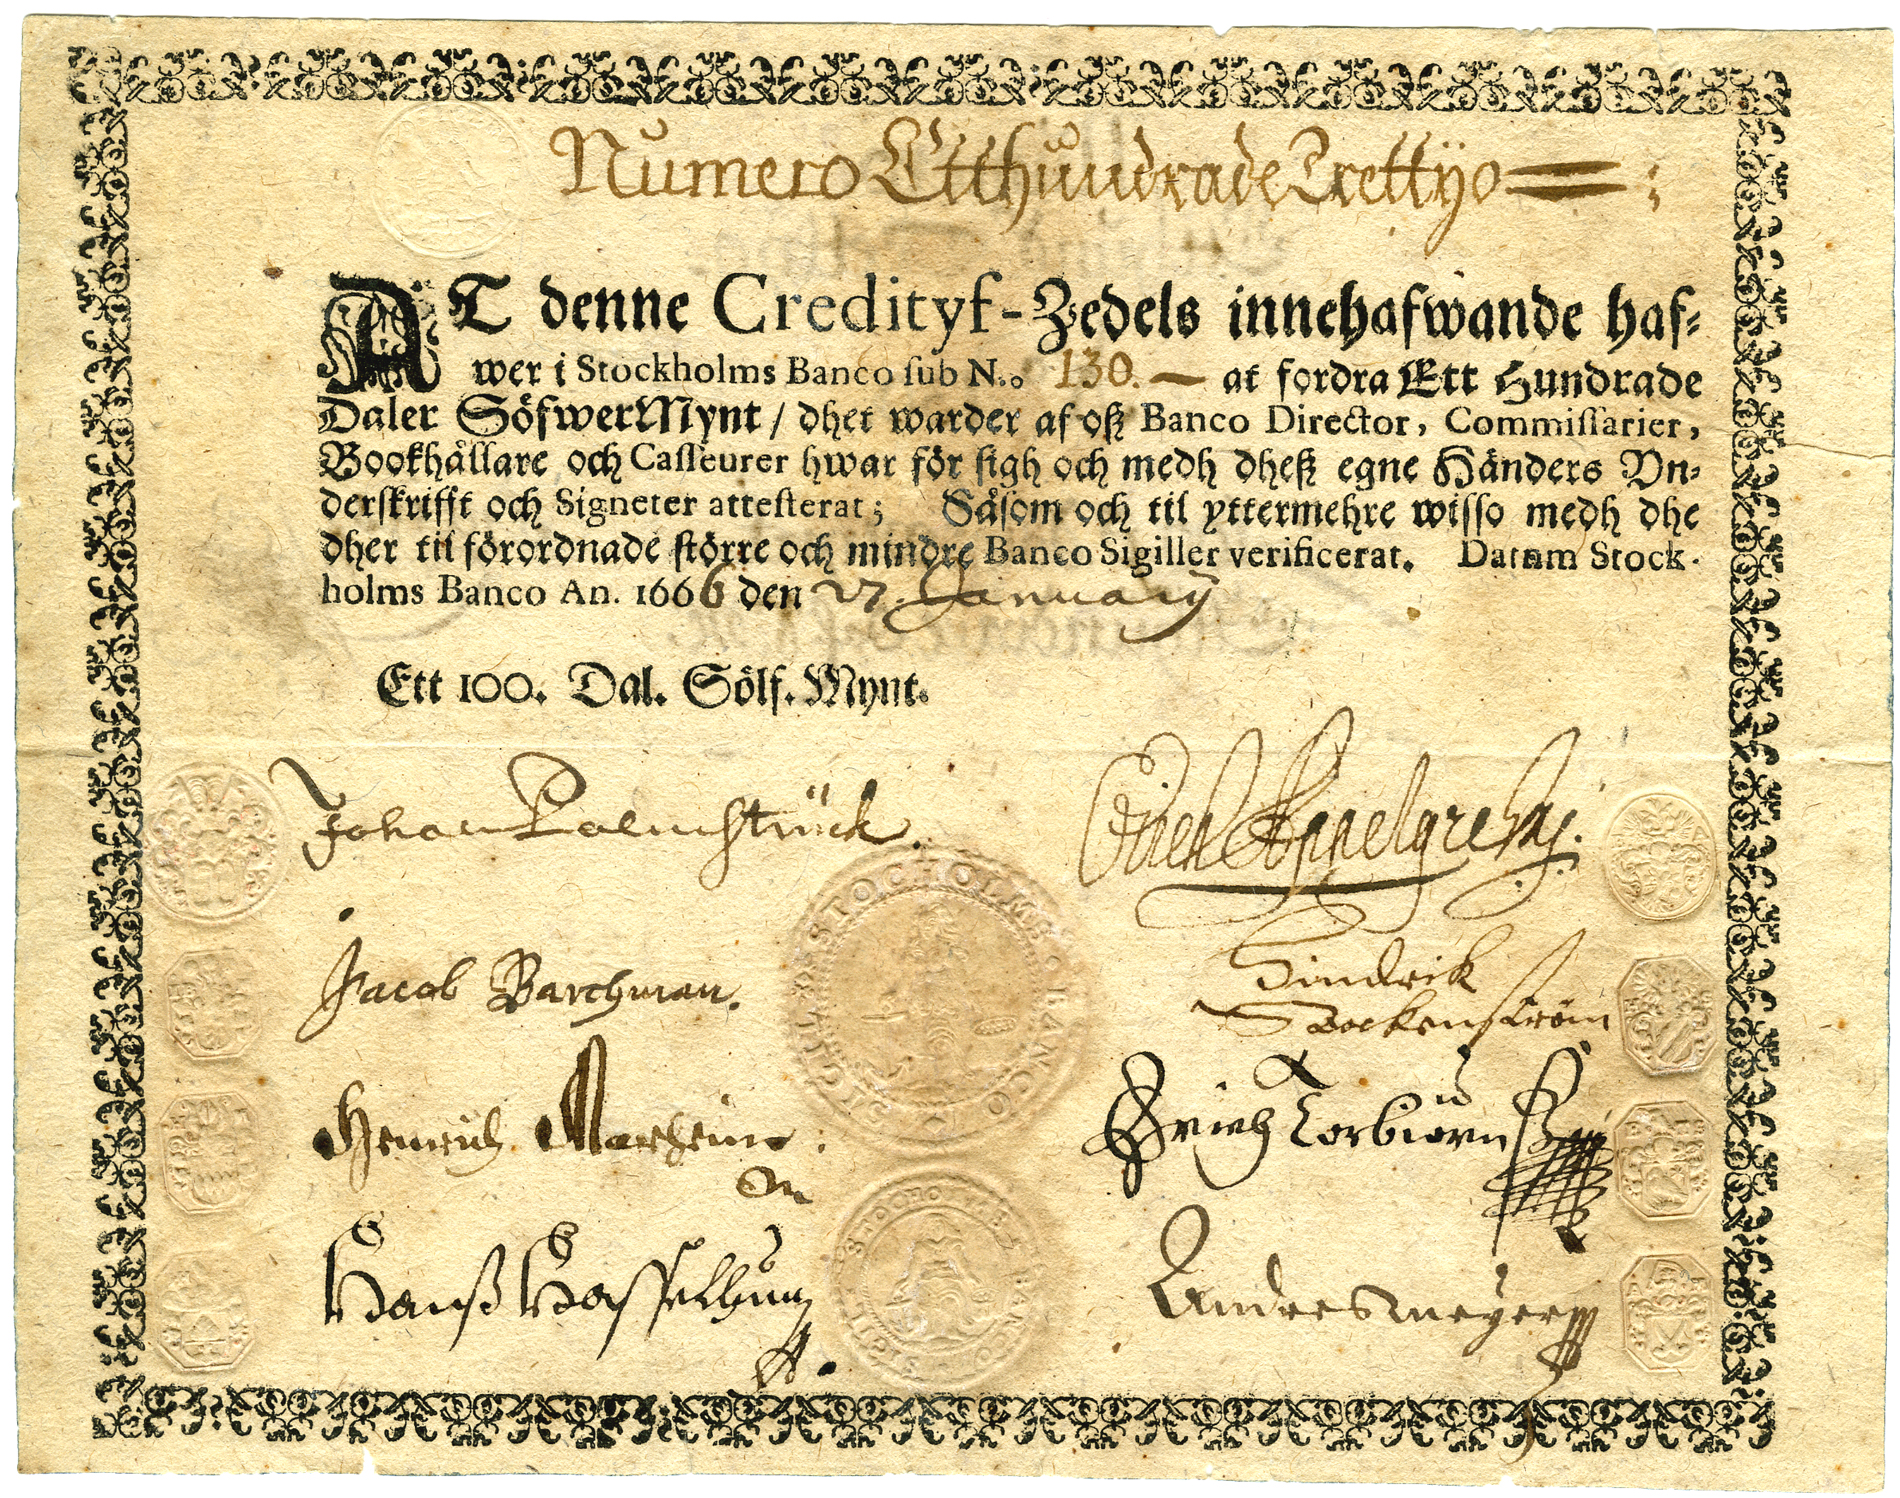 Numero Etthundrade Trettijo
AT denne Credityf-Zedels innehafwande haf-
wer i Stockholms Banco sub N.o 130. — at fordra Ett Hundrade
Daler SöfwerMynt / dhet warder af oß Banco Director, Commissarier,
Bookhållare och Casseurer hwar för sigh och medh dheß egne Händers Vn-
derskrifft och Signeter attesterat; Såsom och til yttermehre wisso medh dhe
dher til förordnade större och mindre Banco Sigiller verificerat. Datum Stock-
holms Banco An. 1666 den 27. January
Ett 100. Dal. Sölf. Mynt.
Johan Palmstrück.
Jacob Barchman.
Hindrik
Bockenström
Henrich
Erich Torbiörn
Hanß
Andres meyer
SIGILL STOCHOLMS BANCO
SIGILL STOCHOLMS BANCO